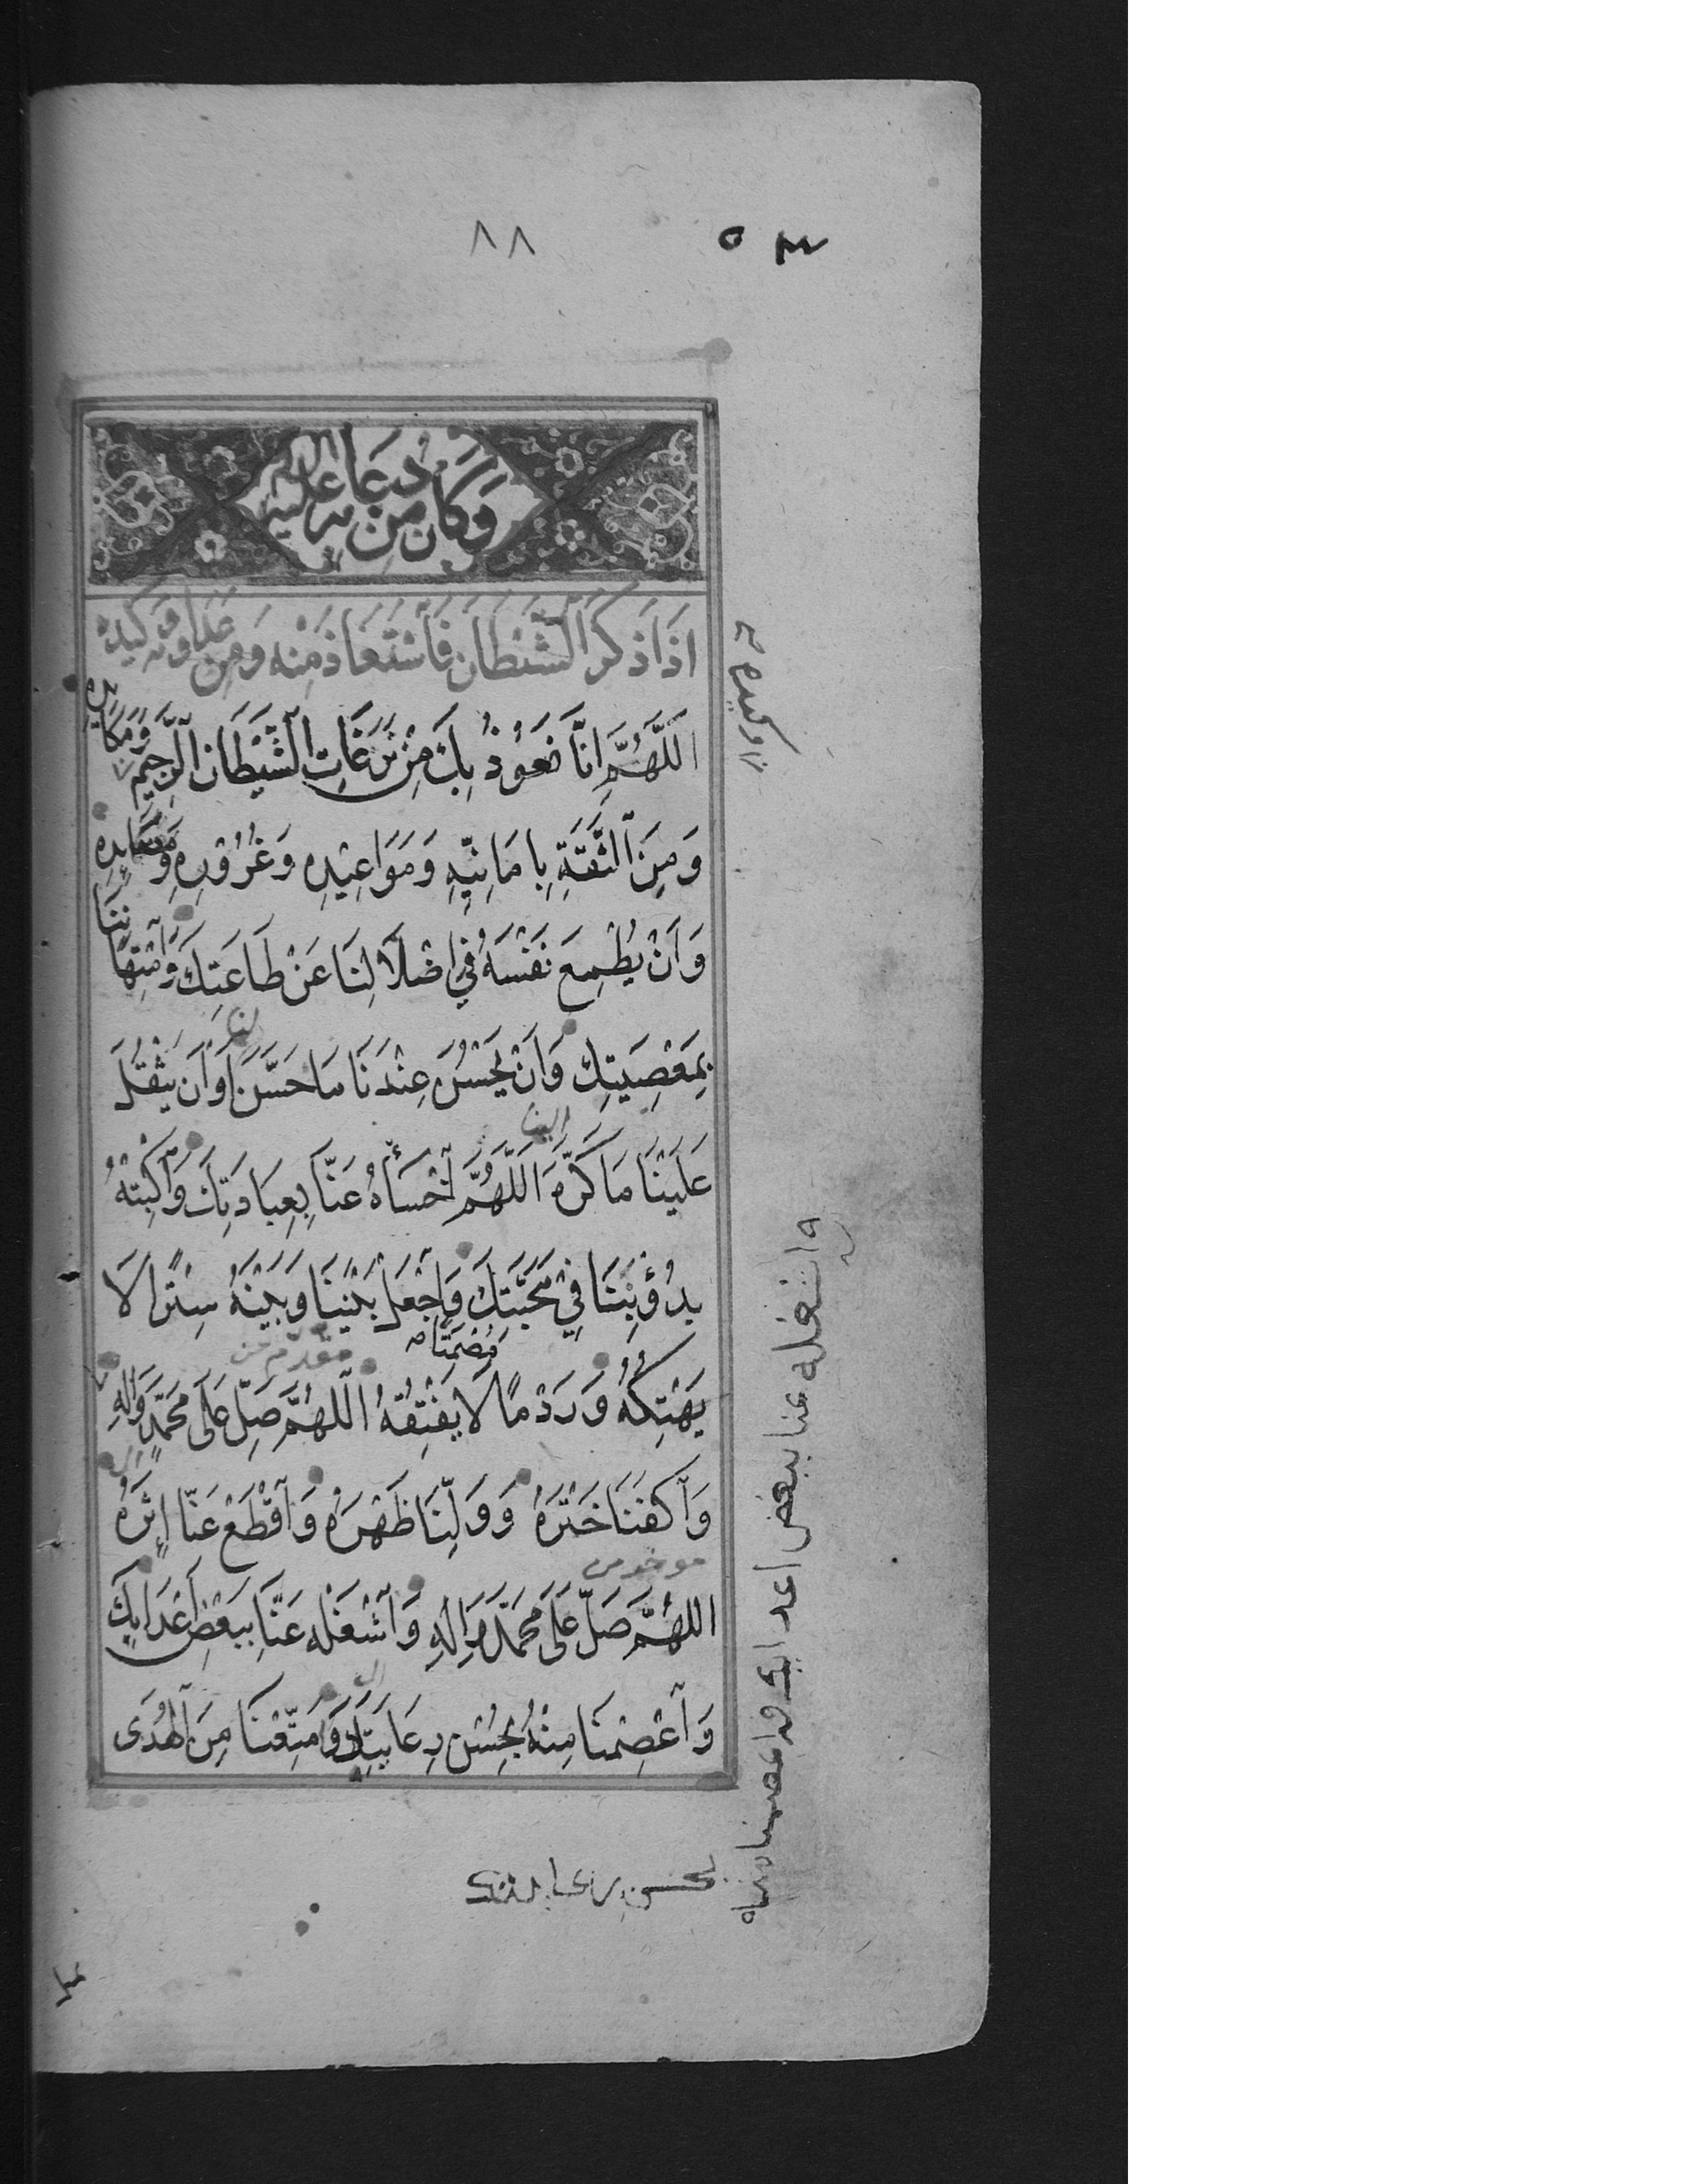 ٨٨
وَكَانَ مِنْ دُعَائِهِ عَلَيْهِ السَّلَامُ
اِذَا ذَكَرَ الشَّيْطَانَ فَاسْتَعَاذَ مِنْهُ وَمِنْ عَدَاوَتِهِ وَكَيْدِهِ
اَللّٰهُمَّ اِنَّا نَعُوْذُ بِكَ مِنْ نَزَغَاتِ الشَّيْطَانِ الرَّجِيْمِ وَمَكَايِدِهِ
وَمِنَ الثِّقَةِ بِاَمَانِيِّهِ وَمَوَاعِيْدِهِ وَغُرُوْرِهِ وَمَصَايِدِهِ
وَاَنْ يُطْمِعَ نَفْسَهُ فِي اِضْلَالِنَا عَنْ طَاعَتِكَ وَامْتِهَانِنَا
بِمَعْصِيَتِكَ وَاَنْ يَحْسُنَ عِنْدَنَا مَا حَسَّنَ لَنَا اَوْ اَنْ يَثْقُلَ
عَلَيْنَا مَا كَرَّهَ اِلَيْنَا اَللّٰهُمَّ اخْسَأْهُ عَنَّا بِعِبَادَتِكَ وَاكْبِتْهُ
بِدُؤُبِنَا فِيْ مَحَبَّتِكَ وَاجْعَلْ بَيْنَنَا وَبَيْنَهُ سِتْرًا لَا
يَهْتِكُهُ وَرَدْمًا مُصْمَتًا لَا يَفْتِقُهُ اَللّٰهُمَّ صَلِّ عَلَى مُحَمَّدٍ وَاٰلِهِ
وَاكْفِنَا خَتْرَهُ وَوَلِّنَا ظَهْرَهُ وَاقْطَعْ عَنَّا اِثْرَهُ
اللّٰهُمَّ صَلِّ عَلَى مُحَمَّدٍ وَاٰلِهِ وَاشْغَلْهُ عَنَّا بِبَعْضِ اَعْدَائِكَ
وَاعْصِمْنَا مِنْهُ بِحُسْنِ رِعَايَتِكَ وَمَتِّعْنَا مِنَ الْهُدَى
وكيده
واشغله عنا ببعض اعدائك واعصمنا منه
بحسن رعايتك